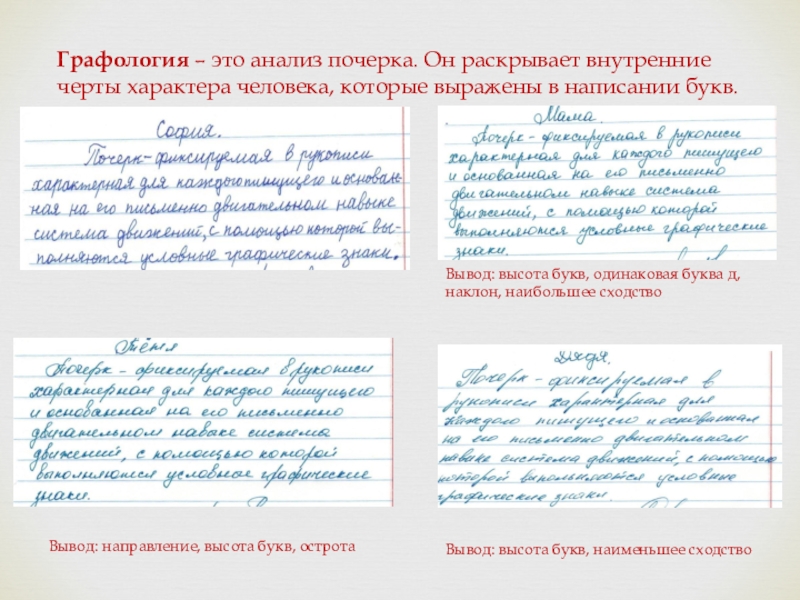 Графология – это анализ почерка. Он раскрывает внутренние
черты характера человека, которые выражены в написании букв.
София.
Почерк-фиксируемая в рукописи
характерная для каждого пишущего и основан-
ная на его письменно двигательном навыке
система движений, с помощью которой вы-
полняются условные графические знаки.
Мама.
Почерк - фиксируемая в рукописи
характерная для каждого пишущего
и основанная на его письменно
двигательном навыке система
движений, с помощью которой
выполняются условные графические
знаки.
Вывод: высота букв, одинаковая буква д,
наклон, наибольшее сходство
Тётя
Почерк - фиксируемая в рукописи
характерная для каждого пишущего
и основанная на его письменно
двигательном навыке система
движений, с помощью которой
выполняются условные графические
знаки.
Дядя.
Почерк - фиксируемая в
рукописи характерная для
каждого пишущего и основанная
на его письменно двигательном
навыке система движений, с помощью
которой выполняются условные
графические знаки.
Вывод: направление, высота букв, острота
Вывод: высота букв, наименьшее сходство